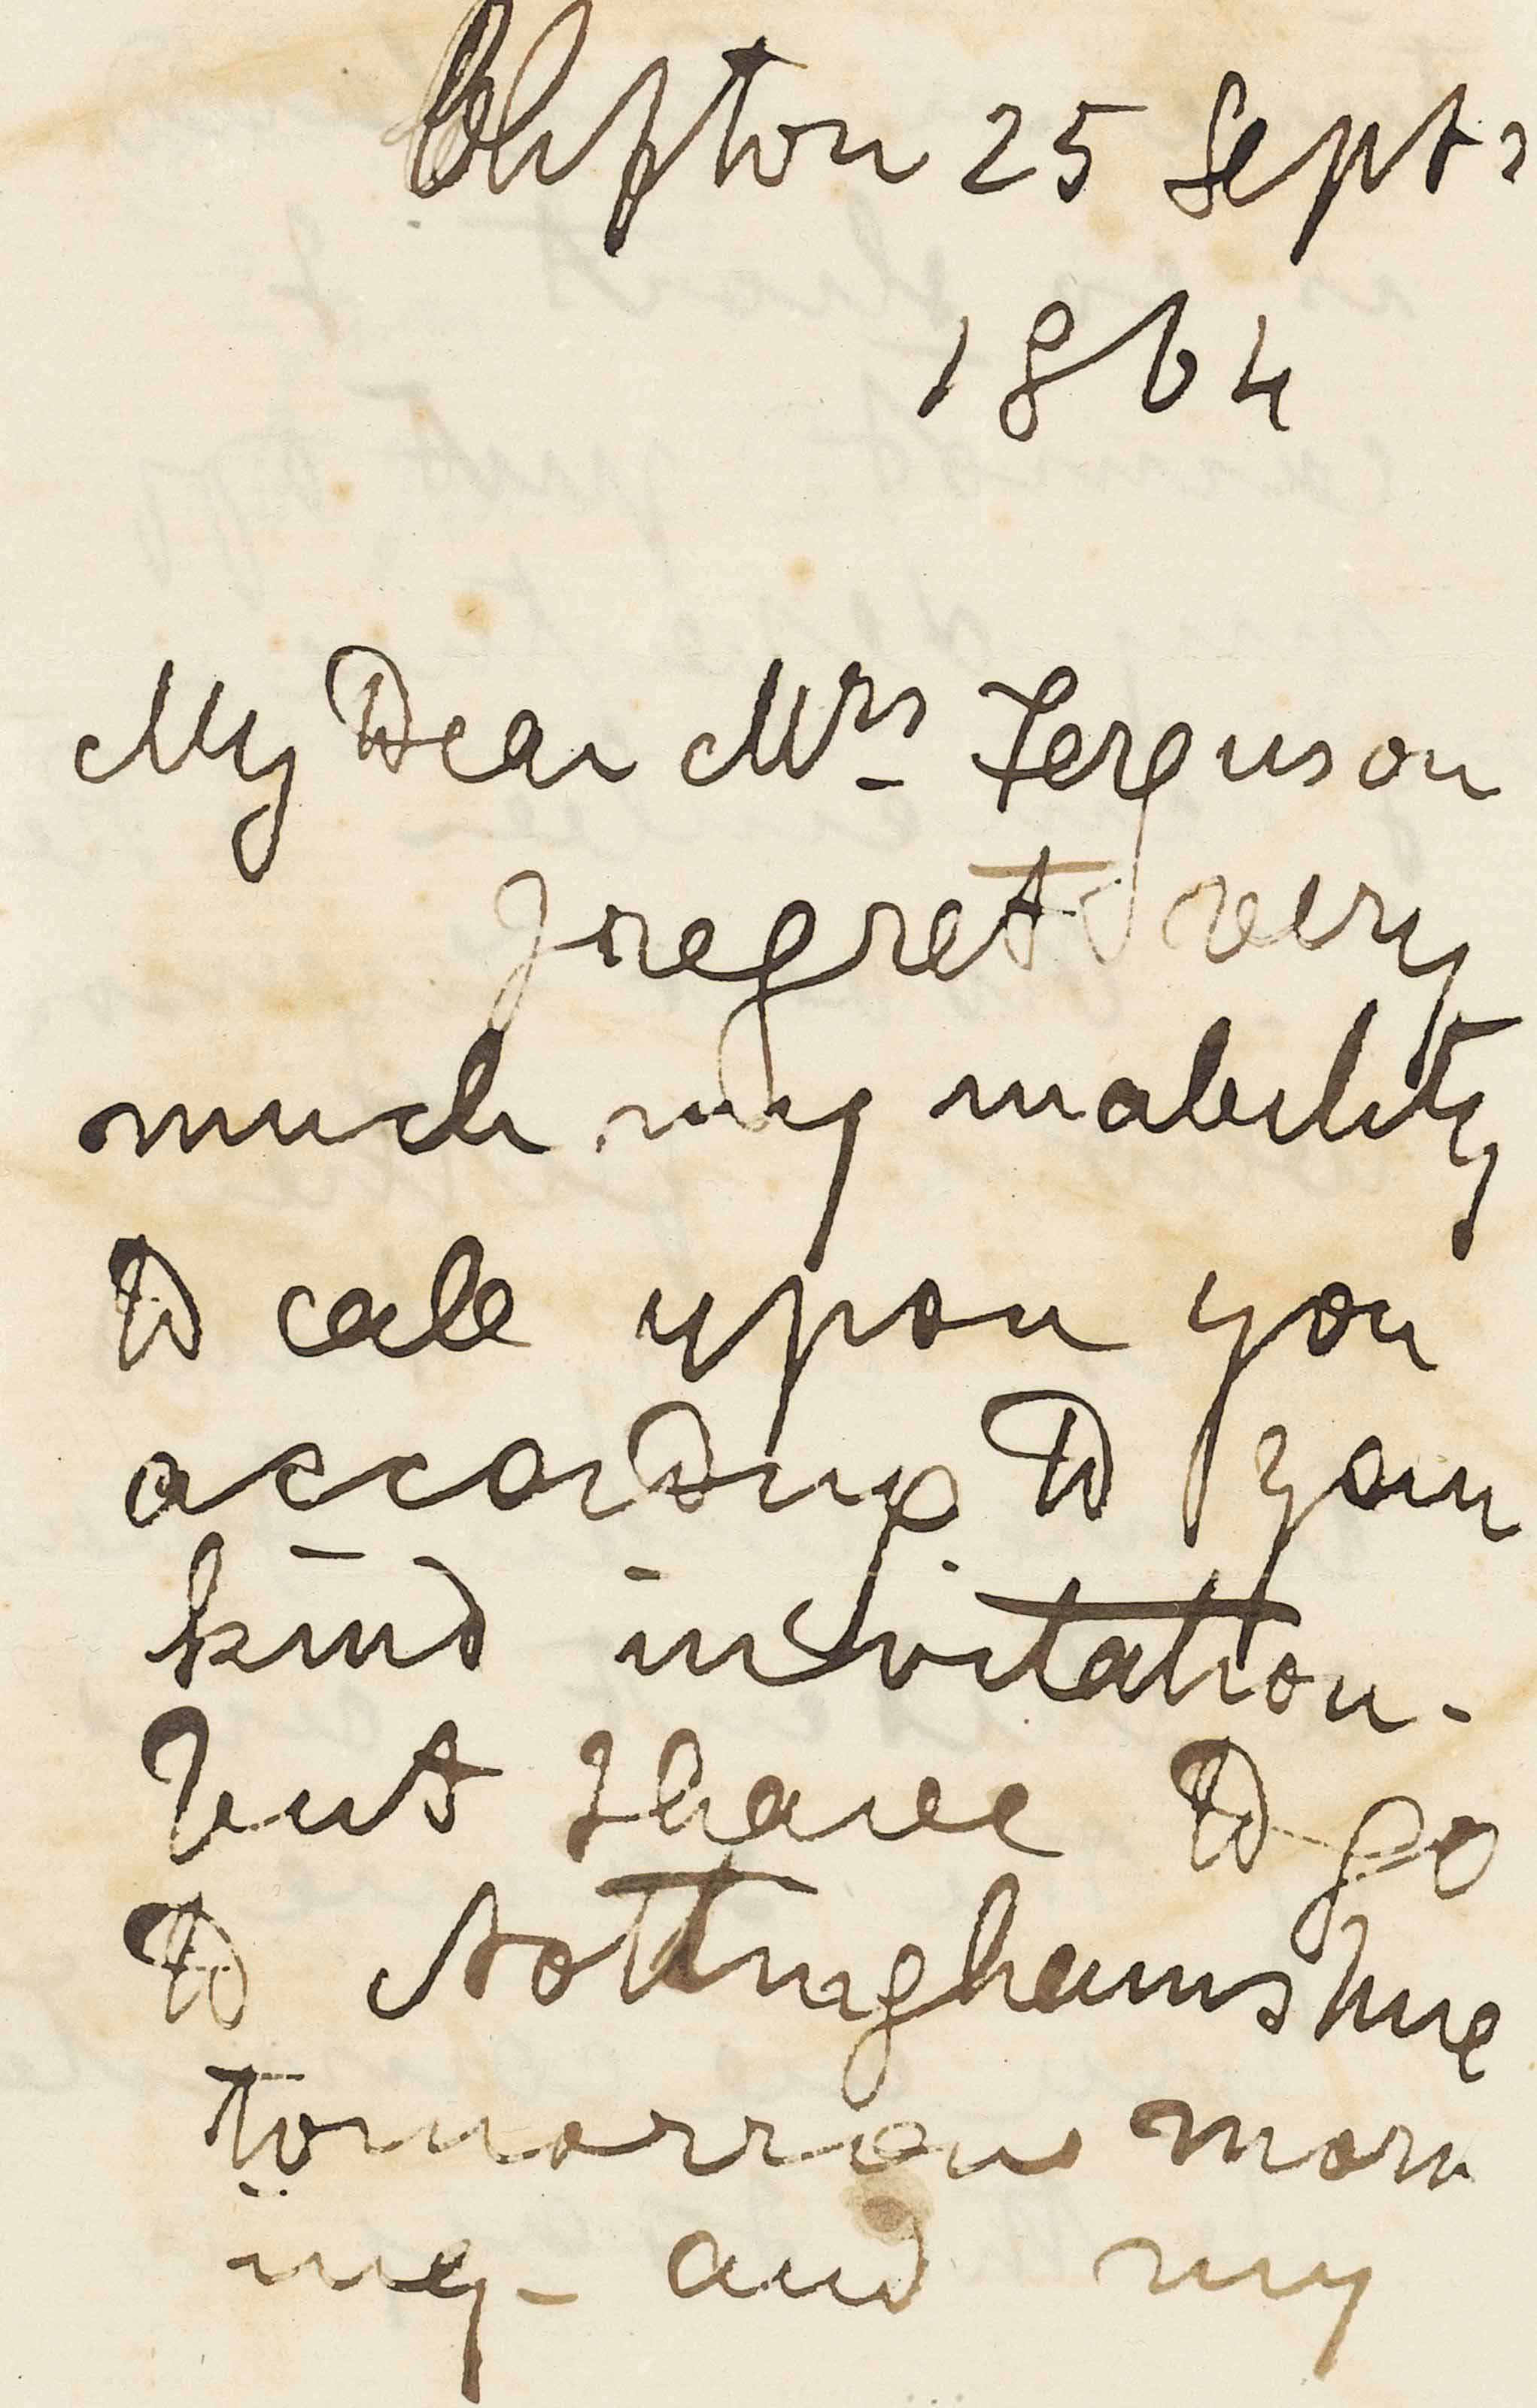 Clifton 25 Sept:
1864
My Dear Mrs Ferguson
I regret very
much my inability
to call upon you
according to your
kind invitation.
But I have to go
to Nottinghamshire
tomorrow morn
ing - and my